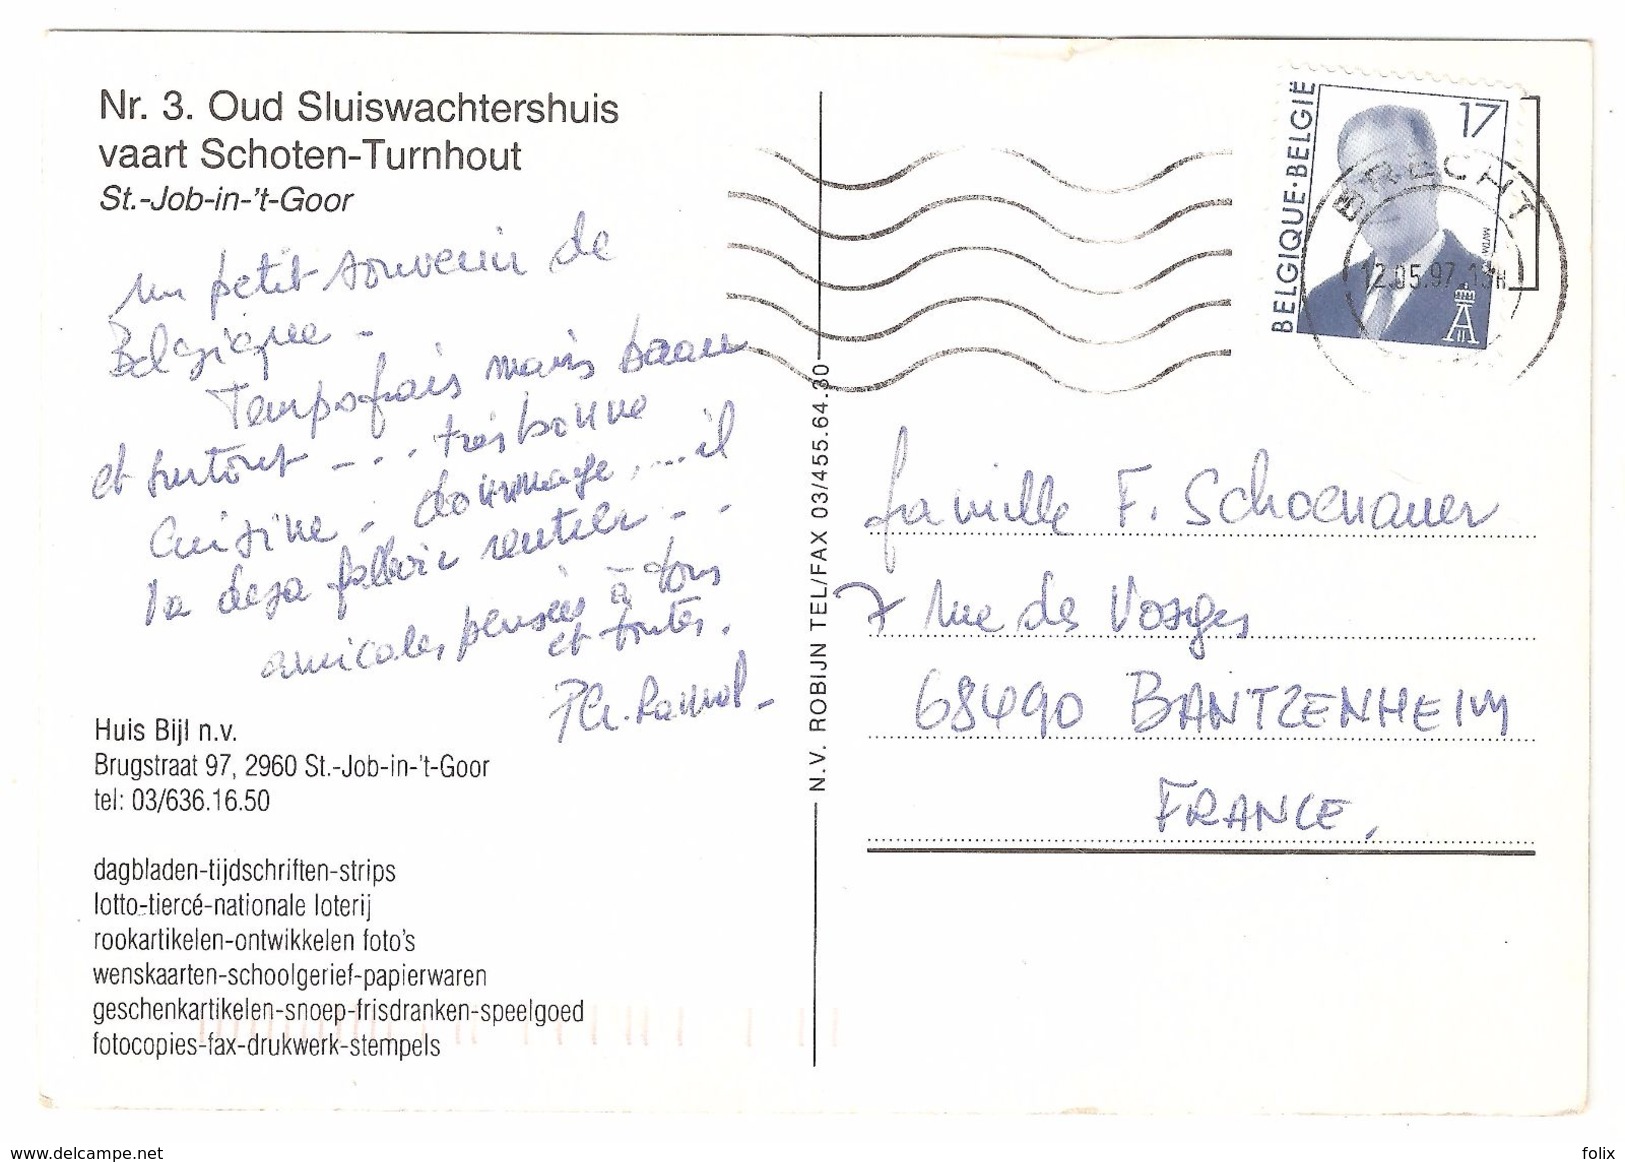 Nr. 3. Oud Sluiswachtershuis
vaart Schoten-Turnhout
St.-Job-in-'t-Goor
un petit souvenir de
Belgique -
Temps frais mais beau
et surtout - . . . très bonne
Cuisine - dommage .... il
va deja falloir rentrer - -
amicales pensées à tous
et toutes.
Huis Bijl n.v.
Brugstraat 97, 2960 St.-Job-in-'t-Goor
tel: 03/636.16.50
dagbladen-tijdschriften-strips
lotto-tiercé-nationale loterij
rookartikelen-ontwikkelen foto's
wenskaarten-schoolgerief-papierwaren
geschenkartikelen-snoep-frisdranken-speelgoed
fotocopies-fax-drukwerk-stempels
N.V. ROBIJN TEL/FAX 03/455.64.30
BELGIQUE·BELGIË
17
BRECHT
12.05.97 13H
famille F. Schoenauer
7 rue des Vosges
68490 BANTZENHEIM
FRANCE.
www.delcampe.net
folix